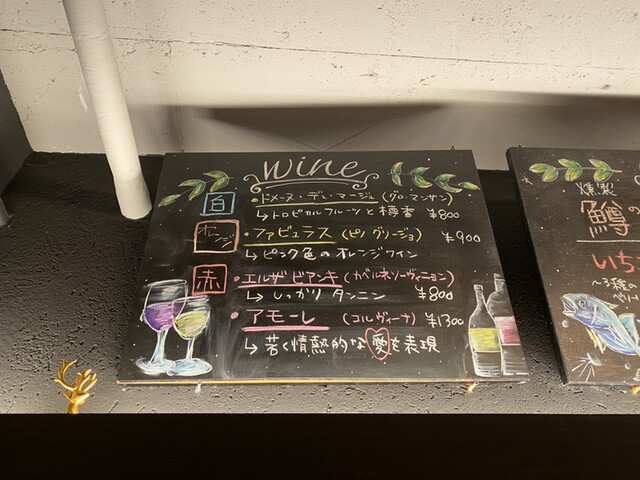 wine
白
・ドメーヌ・デレ・マージュ (グロ・マンサン)
↳トロピカルフルーツと樽香 ¥800
オレンジ
・ファビュラス (ピノグリージョ) ¥900
↳ピンク色のオレンジワイン
赤
・エルザビアンキ (カベルネソーヴィニョン)
↳しっかりタンニン ¥800
・アモーレ (コルヴィーナ) ¥1300
↳若く情熱的な愛を表現
燻製
鱒の
いち
〜3種の
ベリ